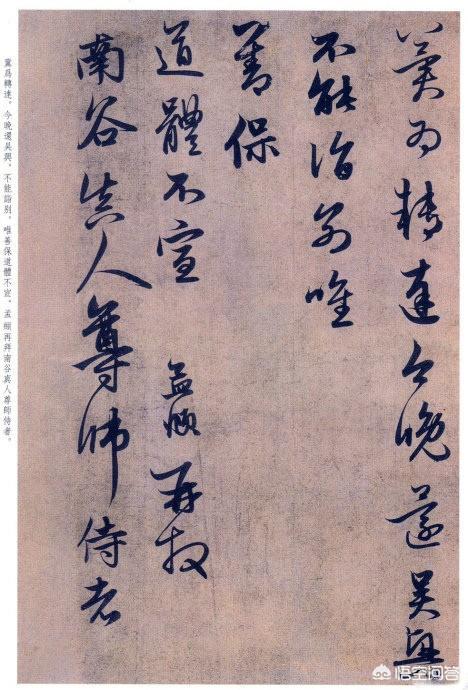 冀为轉達今晚還吴興
不能詣别唯
善保
道體不宣 孟頫再拜
南谷真人尊師侍者
冀爲轉達。今晚還吴興，不能詣别，唯善保道體不宣。孟頫再拜南谷真人尊師侍者。
悟空问答